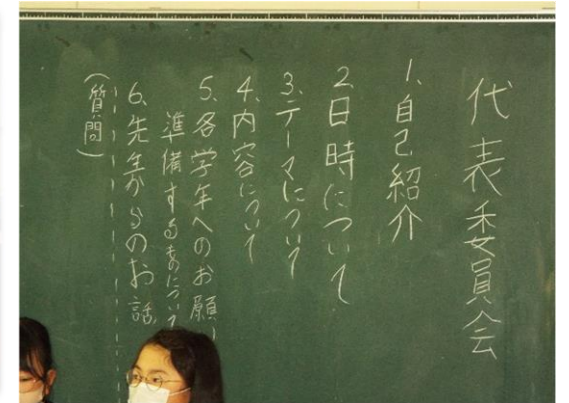 代表委員会
1.自己紹介
2.日時について
3.テーマについて
4.内容について
5.各学年へのお願い
準備するものについて
6.先生からのお話
(質問)